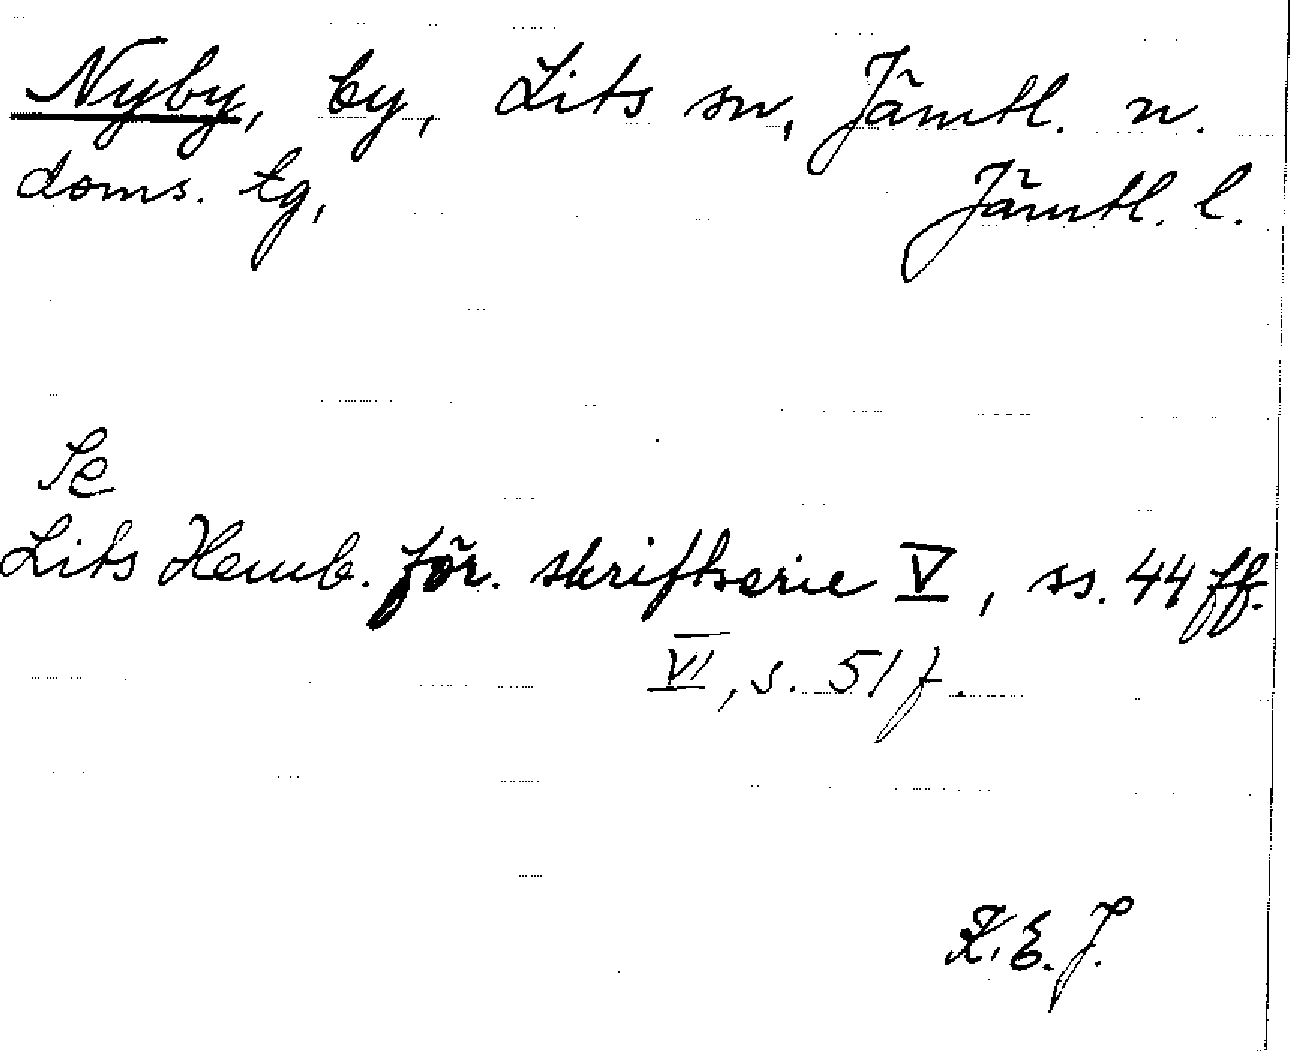 Nyby, by, Lits sn, Jämtl. n.
doms. tg, Jämtl. l.
Se
Lits Hemb. för. skriftserie V, ss. 44 ff.
VI, s. 51 f.
K. E. J.